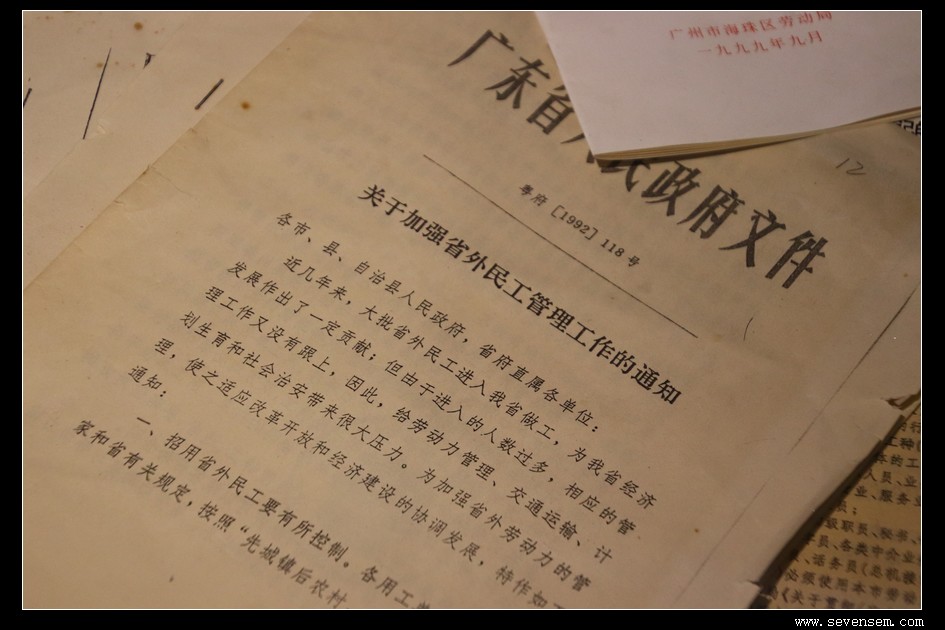 广州市海珠区劳动局
一九九九年九月
广东省人民政府文件
12
粤府［1992］118号
关于加强省外民工管理工作的通知
各市、县、自治县人民政府，省府直属各单位：
近几年来，大批省外民工进入我省做工，为我省经济
发展作出了一定贡献；但由于进入的人数过多，相应的管
理工作又没有跟上，因此，给劳动力管理、交通运输、计
划生育和社会治安带来很大压力。为加强省外劳动力的管
理，使之适应改革开放和经济建设的协调发展，特作如下
通知：
一、招用省外民工要有所控制。各用工
家和省有关规定，按照“先城镇后农村
工种
各的工
人员、业
业、服务业
员；
级职员、秘书、
员、各类中企业
、话务员(总机
必须使用本市劳动
《关于
www.sevensem.com